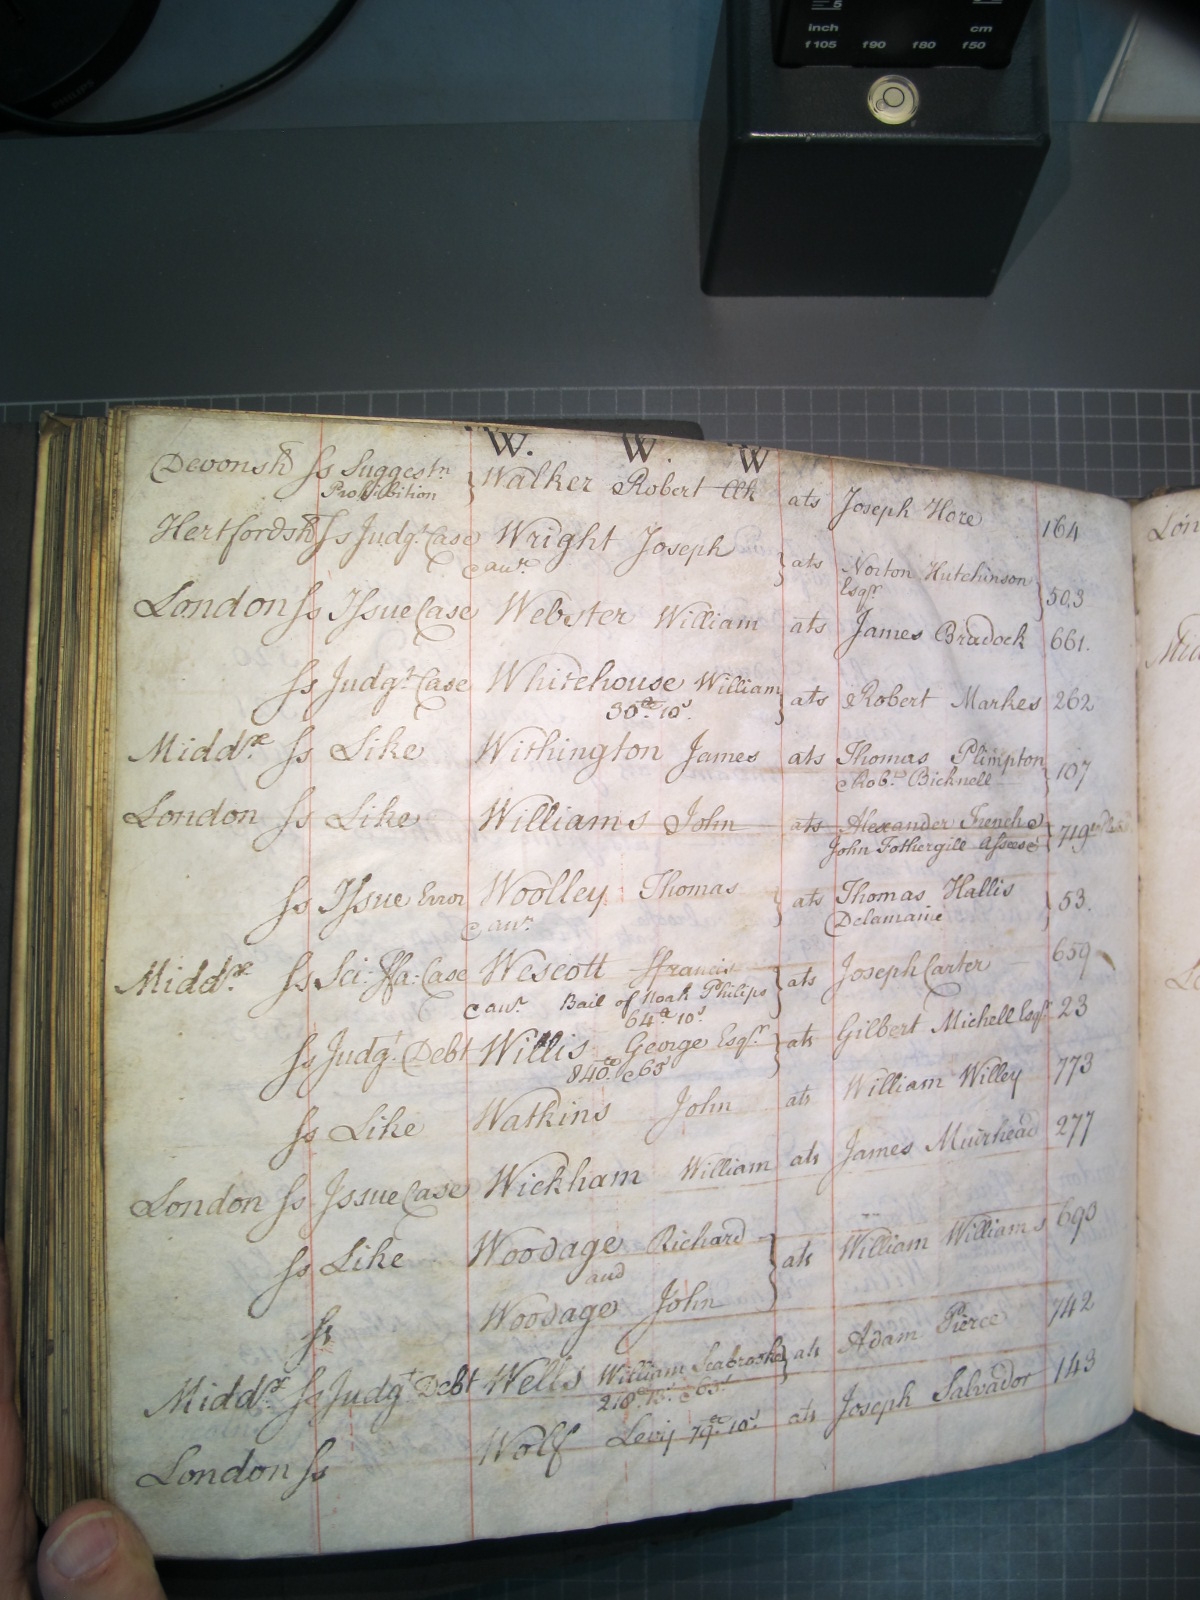 inch cm
f105 f90 f80 f50
W. W. W
Devonsh ss Suggestn Walker Robert Clk ats Joseph Hore 164
Prohibition
Hertfordsh ss Judgt Case Wright Joseph ats Norton Hutchinson 503
Esqr
London ss Issue Case Webster William ats James Bradock 661.
ss Judgt Case Whitehouse William ats Robert Markes 262
30 10s.
Middsx ss Like Withington James ats Thomas Plimpton 107
Robt Bicknell
London ss Like Williams John ats Alexander French 719
John Fothergill
ss Issue Error Woolley Thomas ats Thomas Hallis 53.
Delamaine
Middx ss Sci: ffa: Case Wescott ffrancis ats Joseph Carter 659
Bail of Noah Philips
64 10s
ss Judgt Debt Willis George Esqr ats Gilbert Michell Esqr 23
840 65s
ss Like Watkins John ats William Willey 773
London ss Issue Case Wickham William ats James Muirhead 277
ss Like Woodage Richard ats William Williams 690
and
ss Woodage John
Middsx ss Judgt Debt Wells William Seabrooke ats Adam Pierce 742
London ss Wolf Levy 79 10s ats Joseph Salvador 143